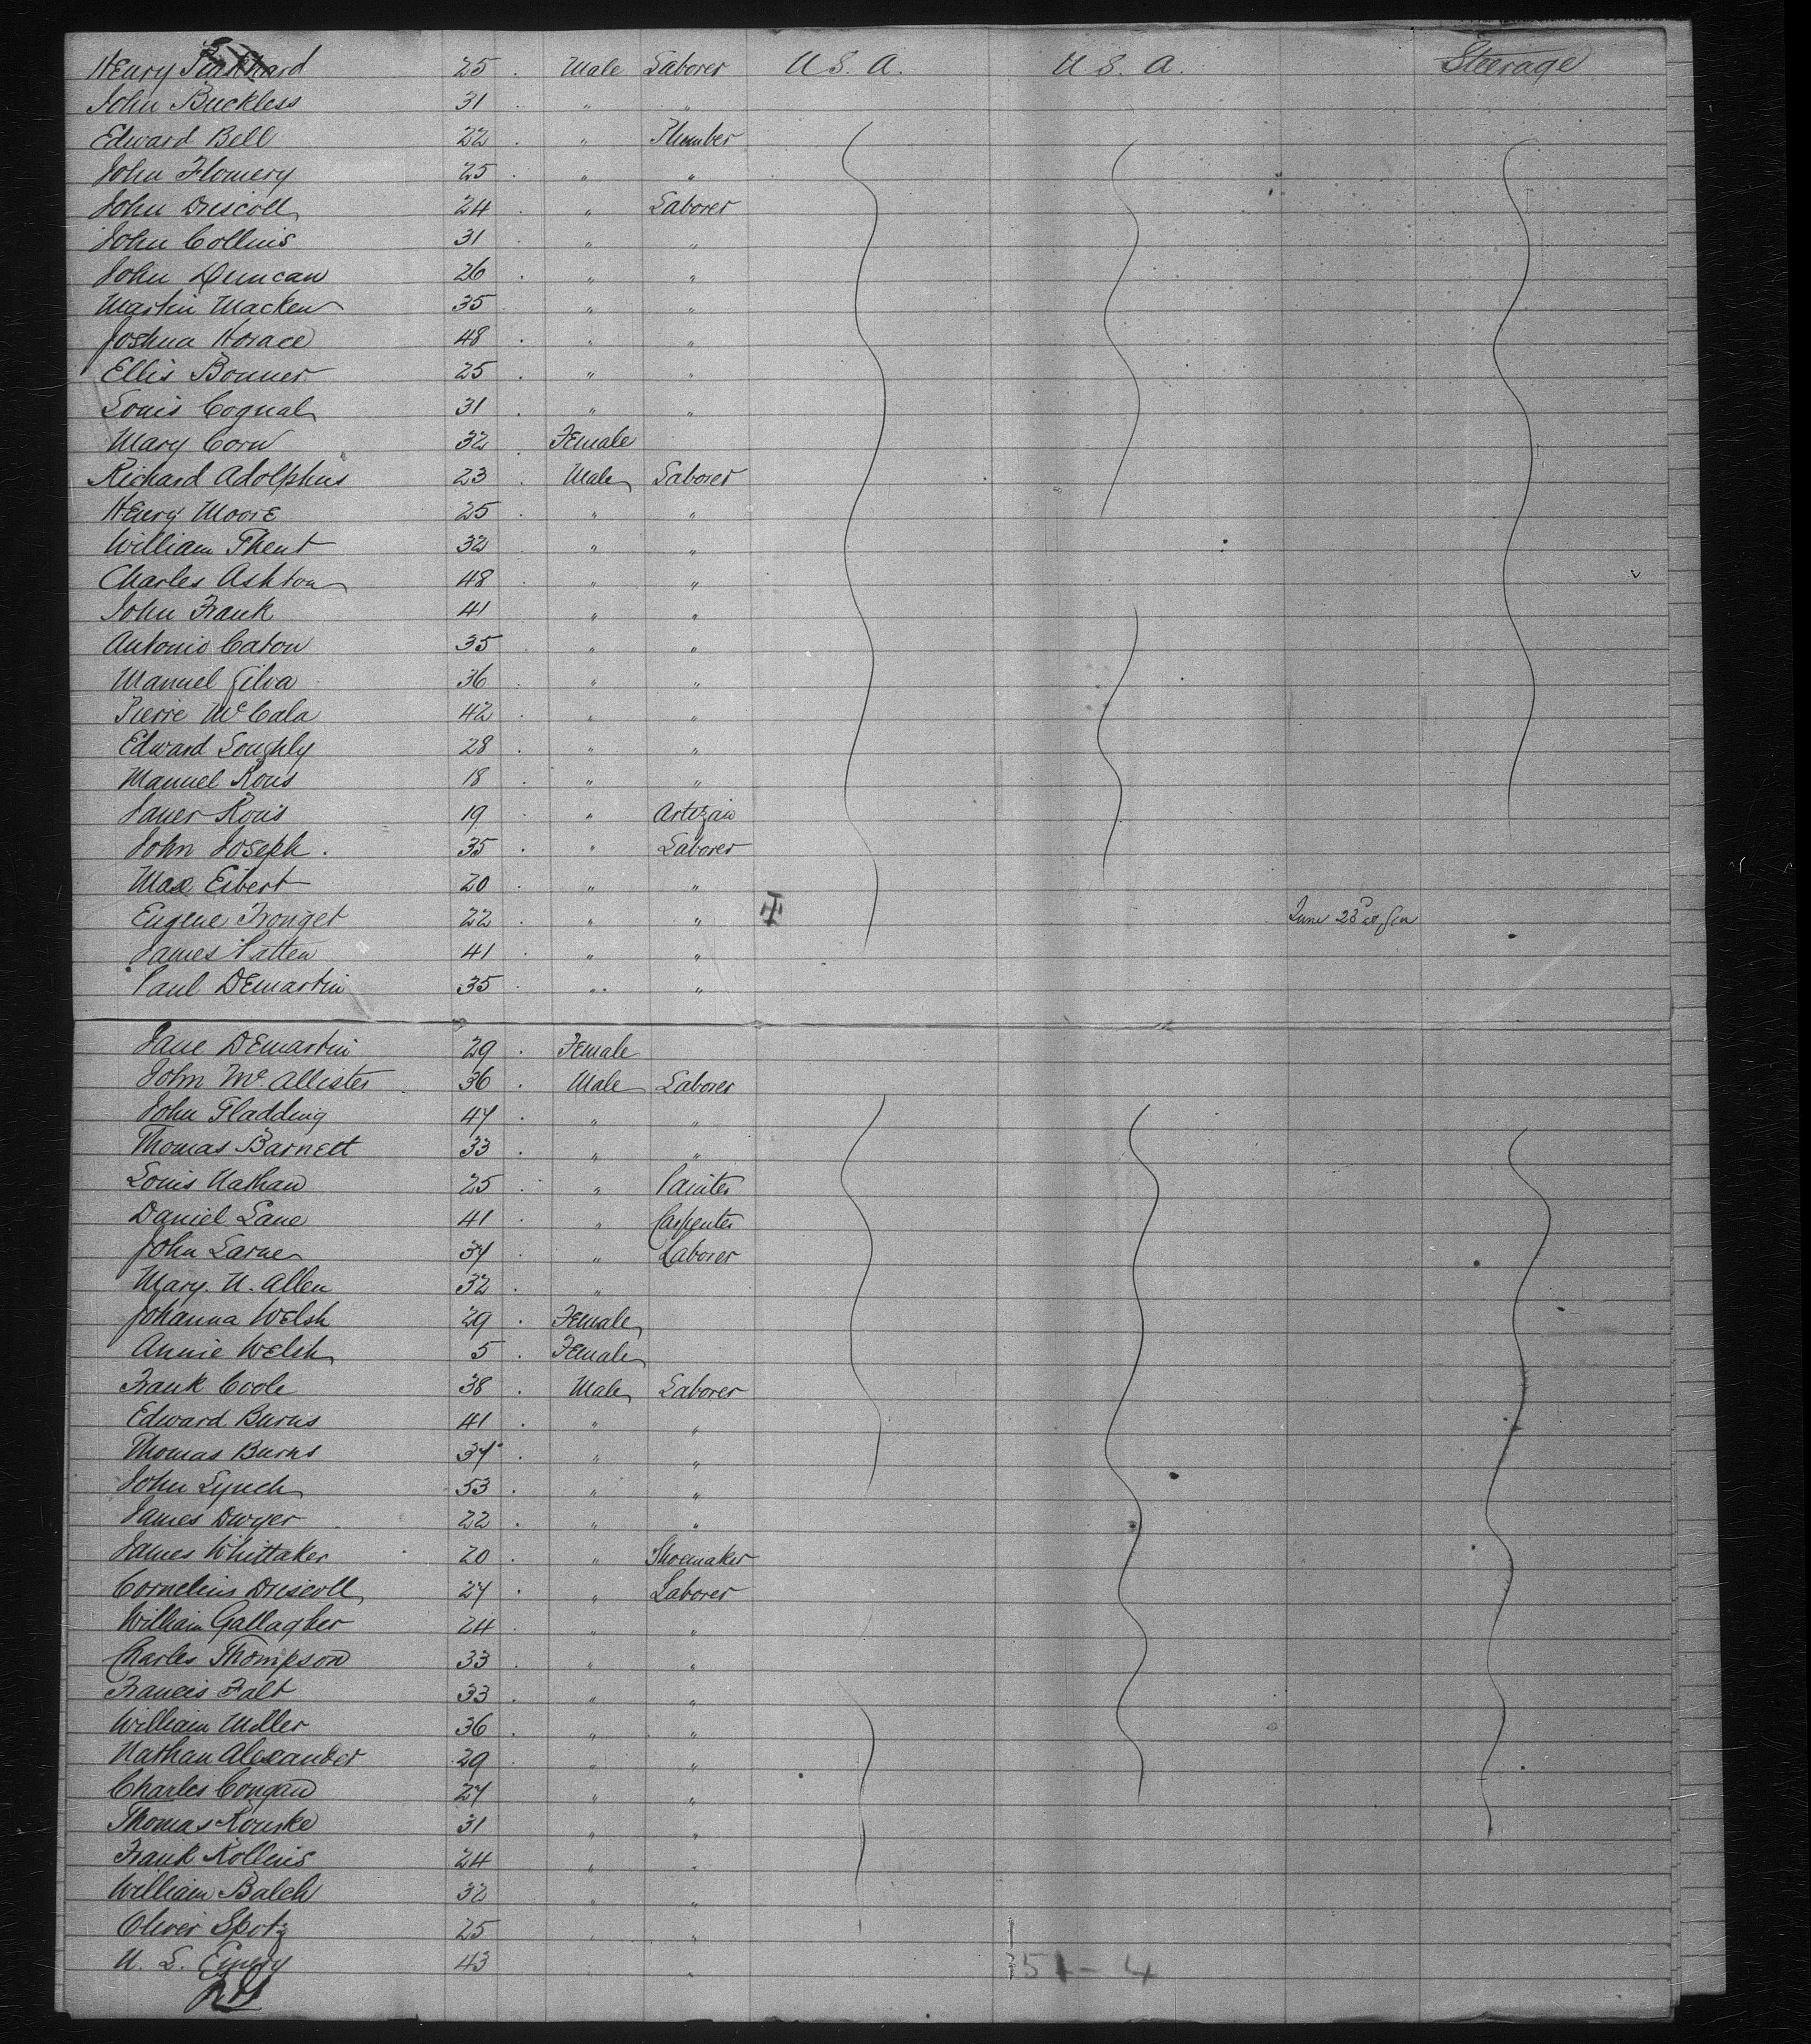 Henry 25 Male Laborer U.S.A. U.S.A. Steerage
John Buckless 31 " "
Edward Bell 22 " Plumber
John Flomery 25 " "
John Driscoll 24 " Laborer
John Collins 31 " "
John Duncan 26 " "
Martin Macken 35 " "
Joshua Horace 48 " "
Ellis Bonner 25 " "
Louis Cognal 31 " "
Mary Corn 32 Female
Richard Adolphus 23 Male Laborer
Henry Moore 25 " "
William Thent 32 " "
Charles Ashton 48 " "
John Frank 41 " "
Antonio Caton 35 " "
Manuel Silva 36 " "
Pierre McCala 42 " "
Edward Loughly 28 " "
Manuel Rous 18 " "
Rous 19 " Artizan
John Joseph 35 " Laborer
Max Eibert 20 " "
Eugene Fronget 22 " " June 23
James Patten 41 " "
Paul Demartin 35 " "
Jane Demartin 29 Female
John McAllister 36 Male Laborer
John Gladding 47 " "
Thomas Barnett 33 " "
Louis Nathan 25 " Painter
Daniel Lane 41 " Carpenter
John Larne 37 " Laborer
Mary N. Allen 32 "
Johanna Welsh 29 Female
Annie Welsh 5 Female
Frank Coole 38 Male Laborer
Edward Burns 41 " "
Thomas Burns 37 " "
John Lynch 53 " "
James Dwyer 22 " "
James Whittaker 20 " Shoemaker
Cornelius Driscoll 27 " Laborer
William Gallagher 24 " "
Charles Thompson 33 " "
Francis Falt 33 " "
William Miller 36 " "
Nathan Alexander 29 " "
Charles Congan 27 " "
Thomas Rourke 31 " "
Frank Rollins 24 " "
William Balch 32 " "
Oliver Spotz 25 " "
N. L. Emery 43 " "
351-4